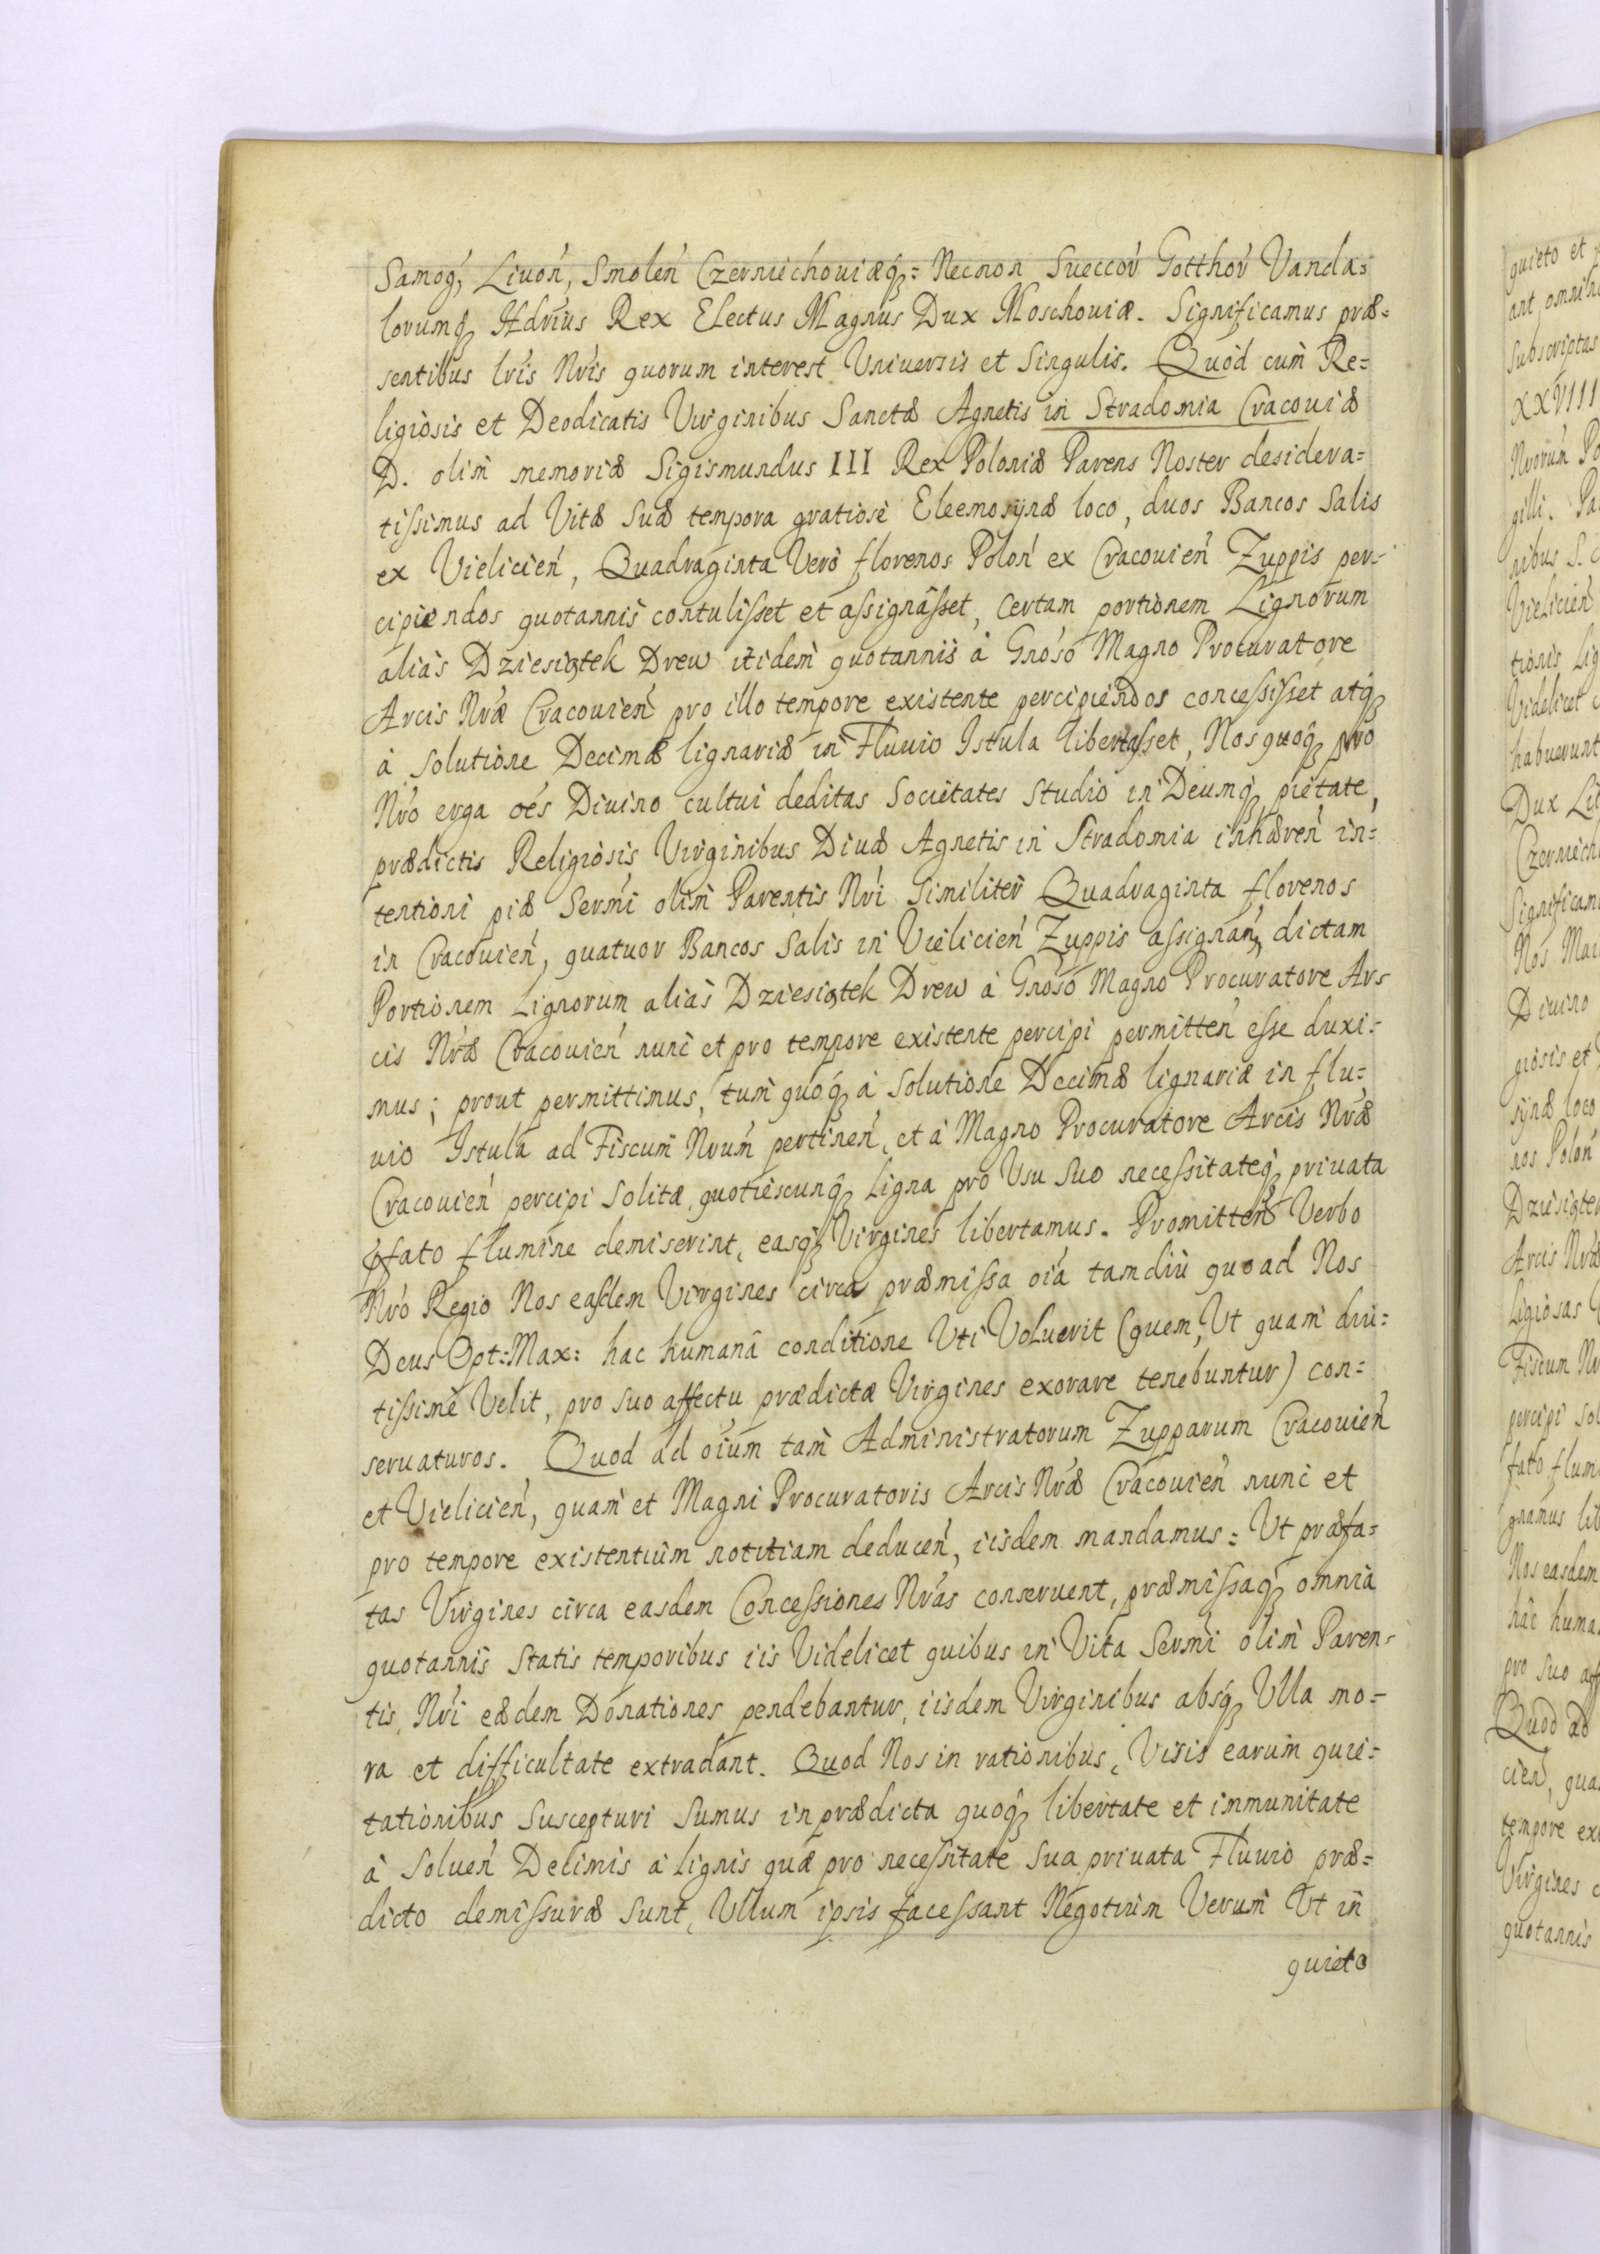 Samog, Livoń, Smoleń Czerniechoviæq;= Necnon Sueccoŕ Gotthoŕ Vanda=
lorumq; Hdŕius Rex Electus Magnus Dux Moschoviæ. Significamus præ=
sentibus lŕis Nŕis quorum interest Universis et Singulis. Quòd cum Re=
ligiosis et Deodicatis Virginibus Sanctæ Agnetis in Stradomia Cracoviæ
D. olim memoriæ Sigismundus III Rex Poloniæ Parens Noster desidera=
tissimus ad Vitæ Suæ tempora gratiosè Eleemosynæ loco, duos Bancos Salis
ex Vielicień, Quadraginta Verò florenos Poloń ex Cracovień Zuppis per=
cipiendos quotannis contulisset et assignâsset, certam portionem Lignorum
aliàs Dziesiątek Drew itidem quotannis à Gnoso Magno Procuratore
Arcis Nŕæ Cracovień pro illo tempore existente percipiendos concessisset atq;
à solutione Decimæ lignariæ in Fluvio Istula libertasset, Nos quoq; pro
Nŕo erga oes Divino cultui deditas Societates Studio in Deumq; pietate,
prædictis Religiosis Virginibus Divæ Agnetis in Stradomia inhæreń in=
tentioni piæ Sermi olim Parentis Nŕi Similiter Quadraginta florenos
in Cracovień, quatuor Bancos Salis in Vielicień Zuppis assignań, dictam
Portionem Lignorum aliàs Dziesiątek Drew à Gnoso Magno Procuratore Ar=
cis Nŕæ Cracovień nunc et pro tempore existente percipi permitteń esse duxi=
mus; prout permittimus, tum quoq; à Solutione Decimæ lignariæ in flu=
vio Istula ad Fiscum Nŕum pertineń, et à Magno Procuratore Arcis Nŕæ
Cracovień percipi Solitæ, quotiescunq; Ligna pro Usu Suo necessitateq; privata
pfato flumine demiserint, easq; Virgines libertamus. Promitteń Verbo
Nŕo Regio Nos easdem Virgines circa præmissa oia tamdiù quoad Nos
Deus Opt: Max: hac humanâ conditione Uti Voluerit (quem, Ut quam diu=
tissimè Velit, pro suo affectu prædictæ Virgines exorare tenebuntur) con=
servaturos. Quod ad oium tam Administratorum Zupparum Cracovień
et Vielicień, quam et Magni Procuratoris Arcis Nŕæ Cracovień nunc et
pro tempore existentium notitiam deduceń, iisdem mandamus: Ut præfa=
tas Virgines circa easdem Concessiones Nŕas conservent, præmissaq; omnia
quotannis Statis temporibus iis Videlicet quibus in Vita Sermi olim Paren=
tis, Nŕi eædem Donationes pendebantur, iisdem Virginibus absq; Ulla mo=
ra et difficultate extradant. Quod Nos in rationibus, Visis earum quie=
tationibus Suscepturi Sumus in prædicta quoq; libertate et immunitate
à Solueń Decimis à lignis quæ pro necessitate Sua privata Fluvio præ=
dicto demissuræ Sunt, Ullum ipsis facessant Negotium Verum Ut in
quieto
quieto et
ant, omni
Subscriptas
XXVIII
Nŕorum Po
gilli. Pa
nibus S.
Vielicień
tionis Lig
Videlicet
habuerunt
Dux Lit
Czerniech
Significam
Nos
Divino
giosis et
synæ loco
nos Poloń
Dziesiąte
Arcis Nŕæ
ligiosas
Fiscum Nŕ
percipi Sol
fato flum
gnamus lib
Nos easdem
hâc huma
pro suo aff
Quod ad
cień, qua
tempore ex
Virgines c
quotannis